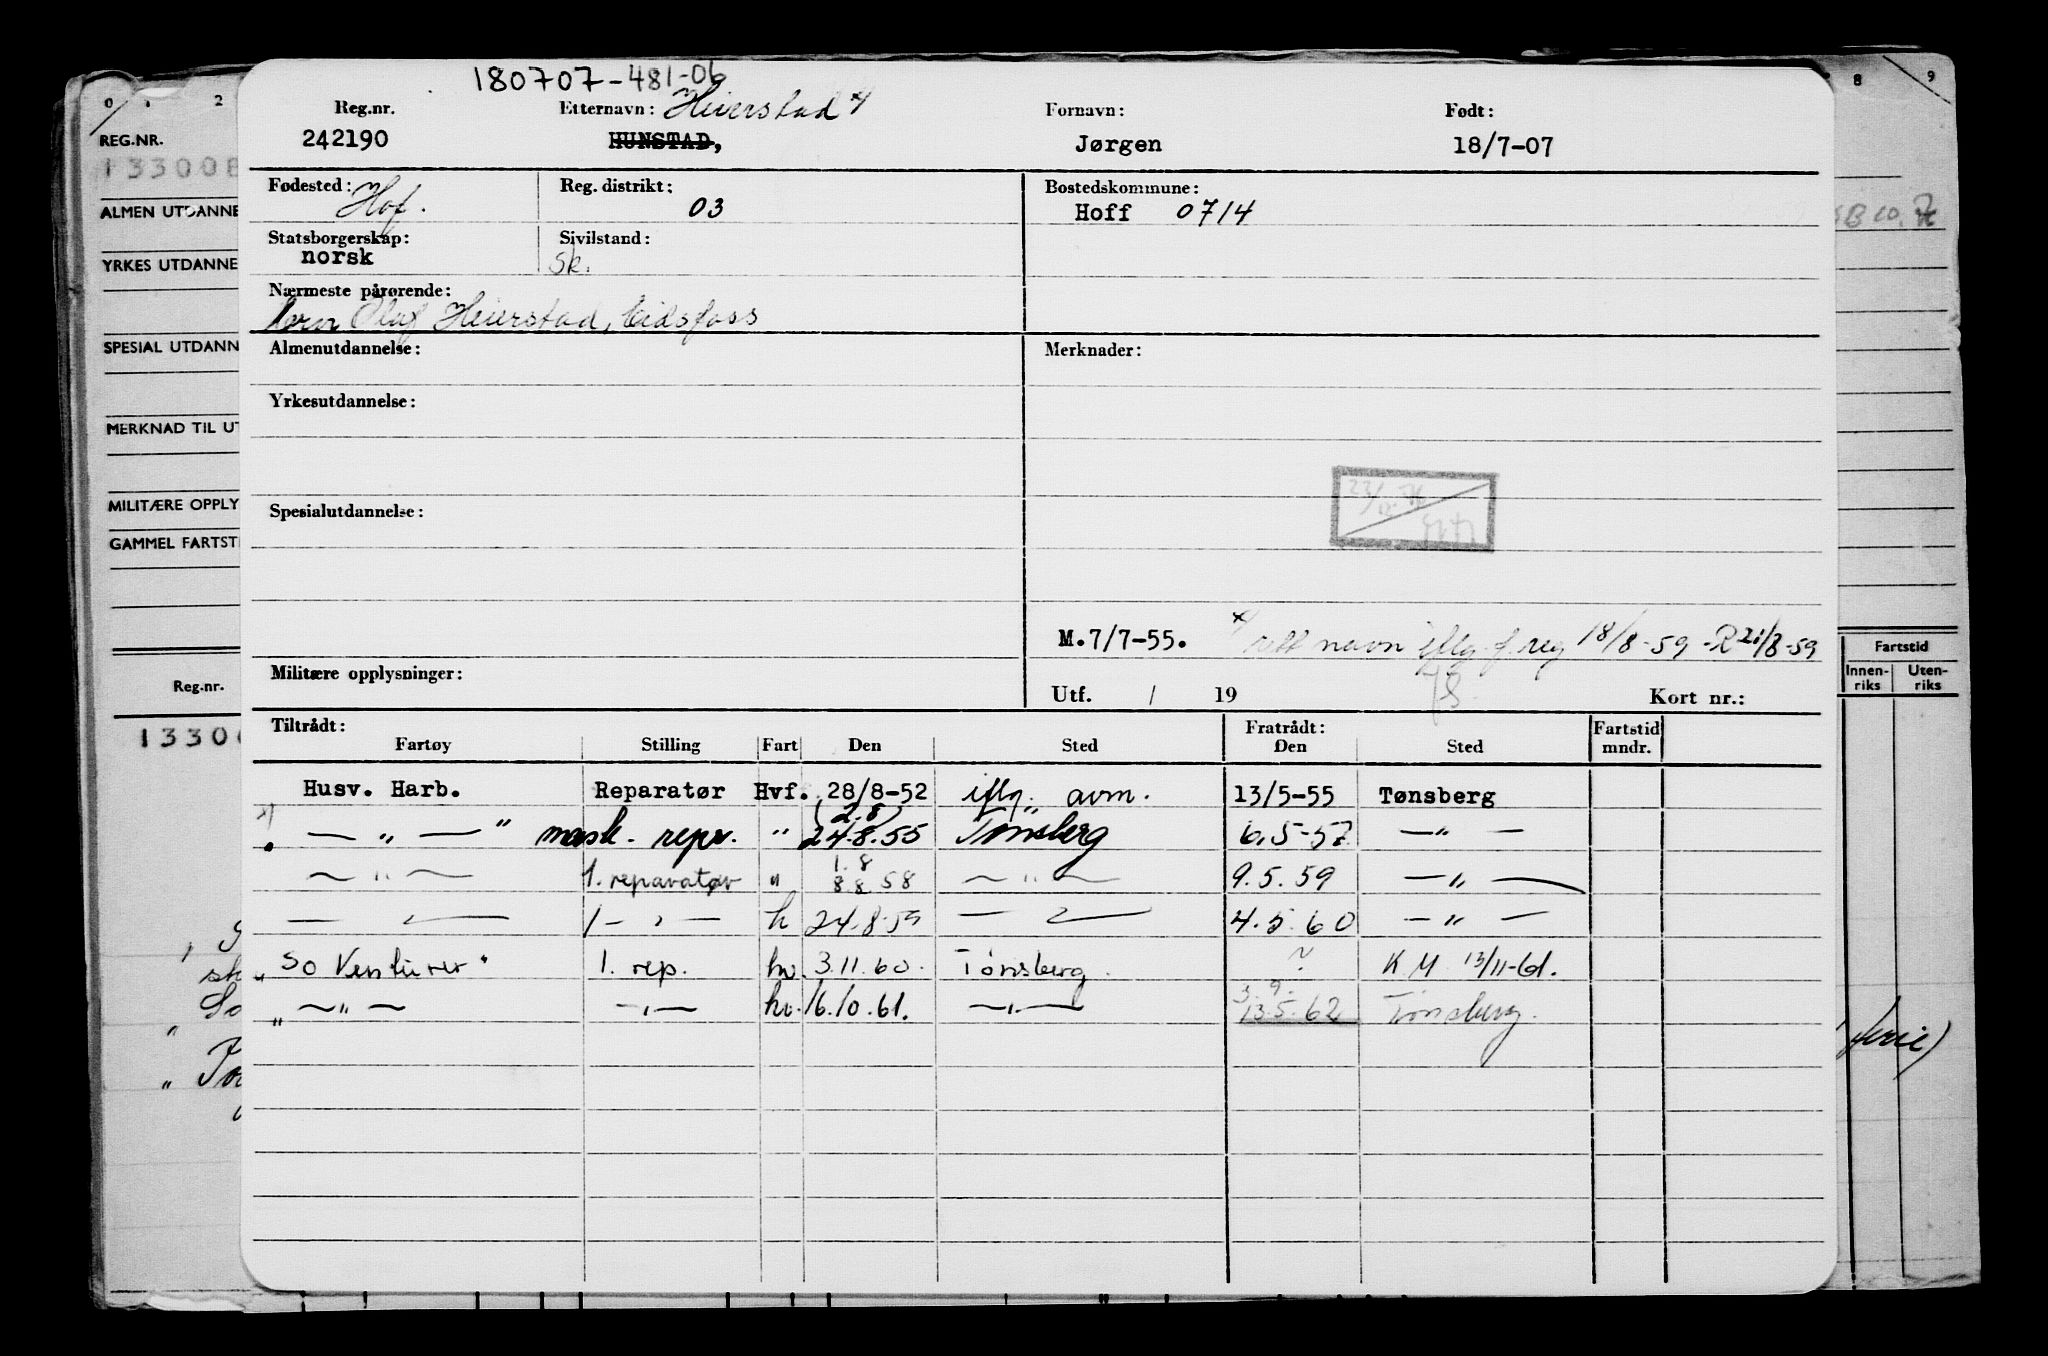 180707-481-06
Reg.nr. Etternavn: Heierstad x) Fornavn: Født:
242190 HUNSTAD, Jørgen 18/7-07
Fødested: Hof. Reg. distrikt: 03 Bostedskommune: Hoff 0714
Statsborgerskap: norsk Sivilstand: Sk.
Nærmeste pårørende:
Olaf Heierstad, Eidsfoss
Almenutdannelse: Merknader:
Yrkesutdannelse:
Spesialutdannelse:
M.7/7-55. x) rett navn iflg. f. reg 18/8-59 -R 21/8-59
Militære opplysninger:
Utf. / 19 Kort nr.:
Tiltrådt: Fratrådt: Fartstid
Fartøy Stilling Fart Den Sted Den Sted mndr.
Husv. Harb. Reparatør Hvf. 28/8-52 iflg. avm. 13/5-55 Tønsberg
x) — " — " mask. repr. " (2.8) 24.8.55 Tønsberg 6.5-57 — " —
— " — 1. reparatør " 1.8 8.8.58 — " — 9.5.59 — " —
— " — 1 — " — h 24.8.59 — " — 4.5.60 — " —
" So Venturer " 1. rep. hv. 3.11.60. Tønsberg. ? K.M. 13/11-61.
" — " — — " — hv. 16.10.61. — " — 3.9. 13.5.62 Tønsberg.
0 1 2
REG.NR.
13300
ALMEN UTDANNE
YRKES UTDANNE
SPESIAL UTDANN
MERKNAD TIL UT
MILITÆRE OPPLY
GAMMEL FARTST
Reg.nr.
1330
8 9
Fartstid
Innen-riks Uten-riks
ferie)